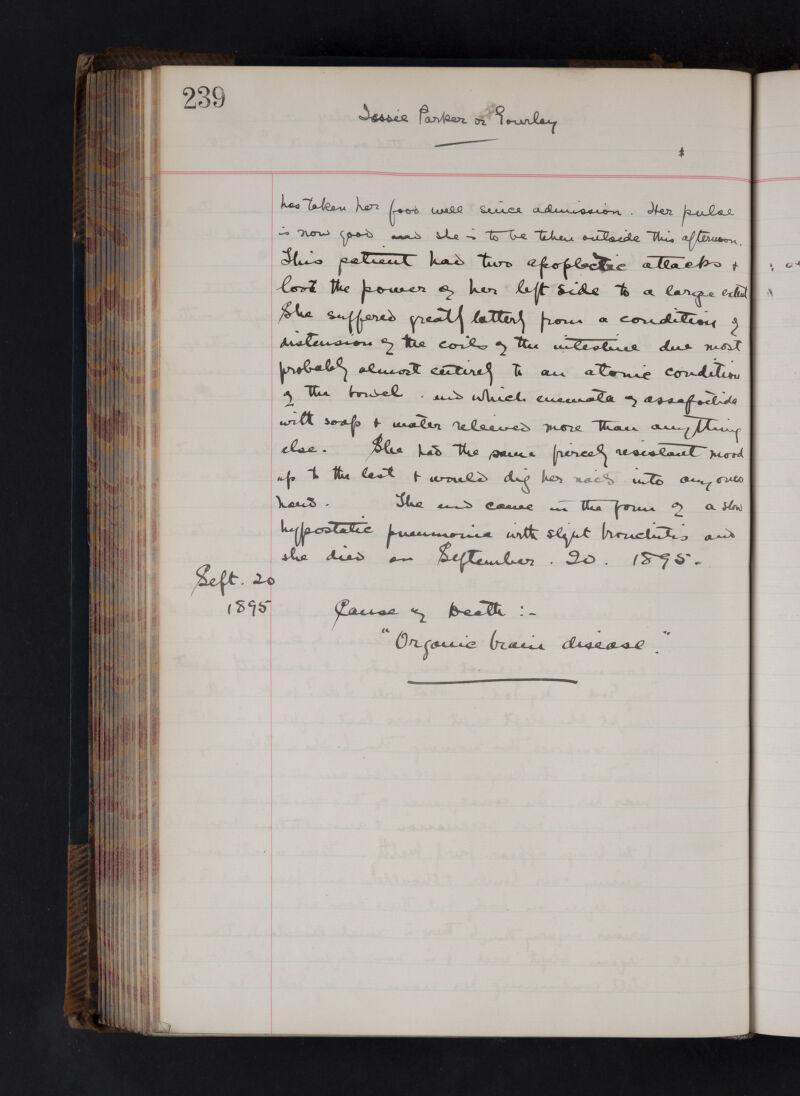 239
Jessie Parker or Gourlay
has taken her food well since admission. Her pulse
is now good and she is to be taken outside this afternoon.
This patient had two apoplectic attacks &
lost the power of her left side to a large extent
She suffered greatly latterly from a condition of
distension of the coils of the intestine due most
probably almost entirely to an atonic condition
of the bowel. and which enemata of assafoetida
with soap & water relieved more than anything
else. She had the same fiercely resistant mood
up to the last & would dig her nails into any ones
hand. The end came in the form of a slow
hypostatic pneumonia with slight bronchitis and
she died on September. 20. 1895.
Sept. 20
1895 Cause of Death :-
"Organic brain disease."